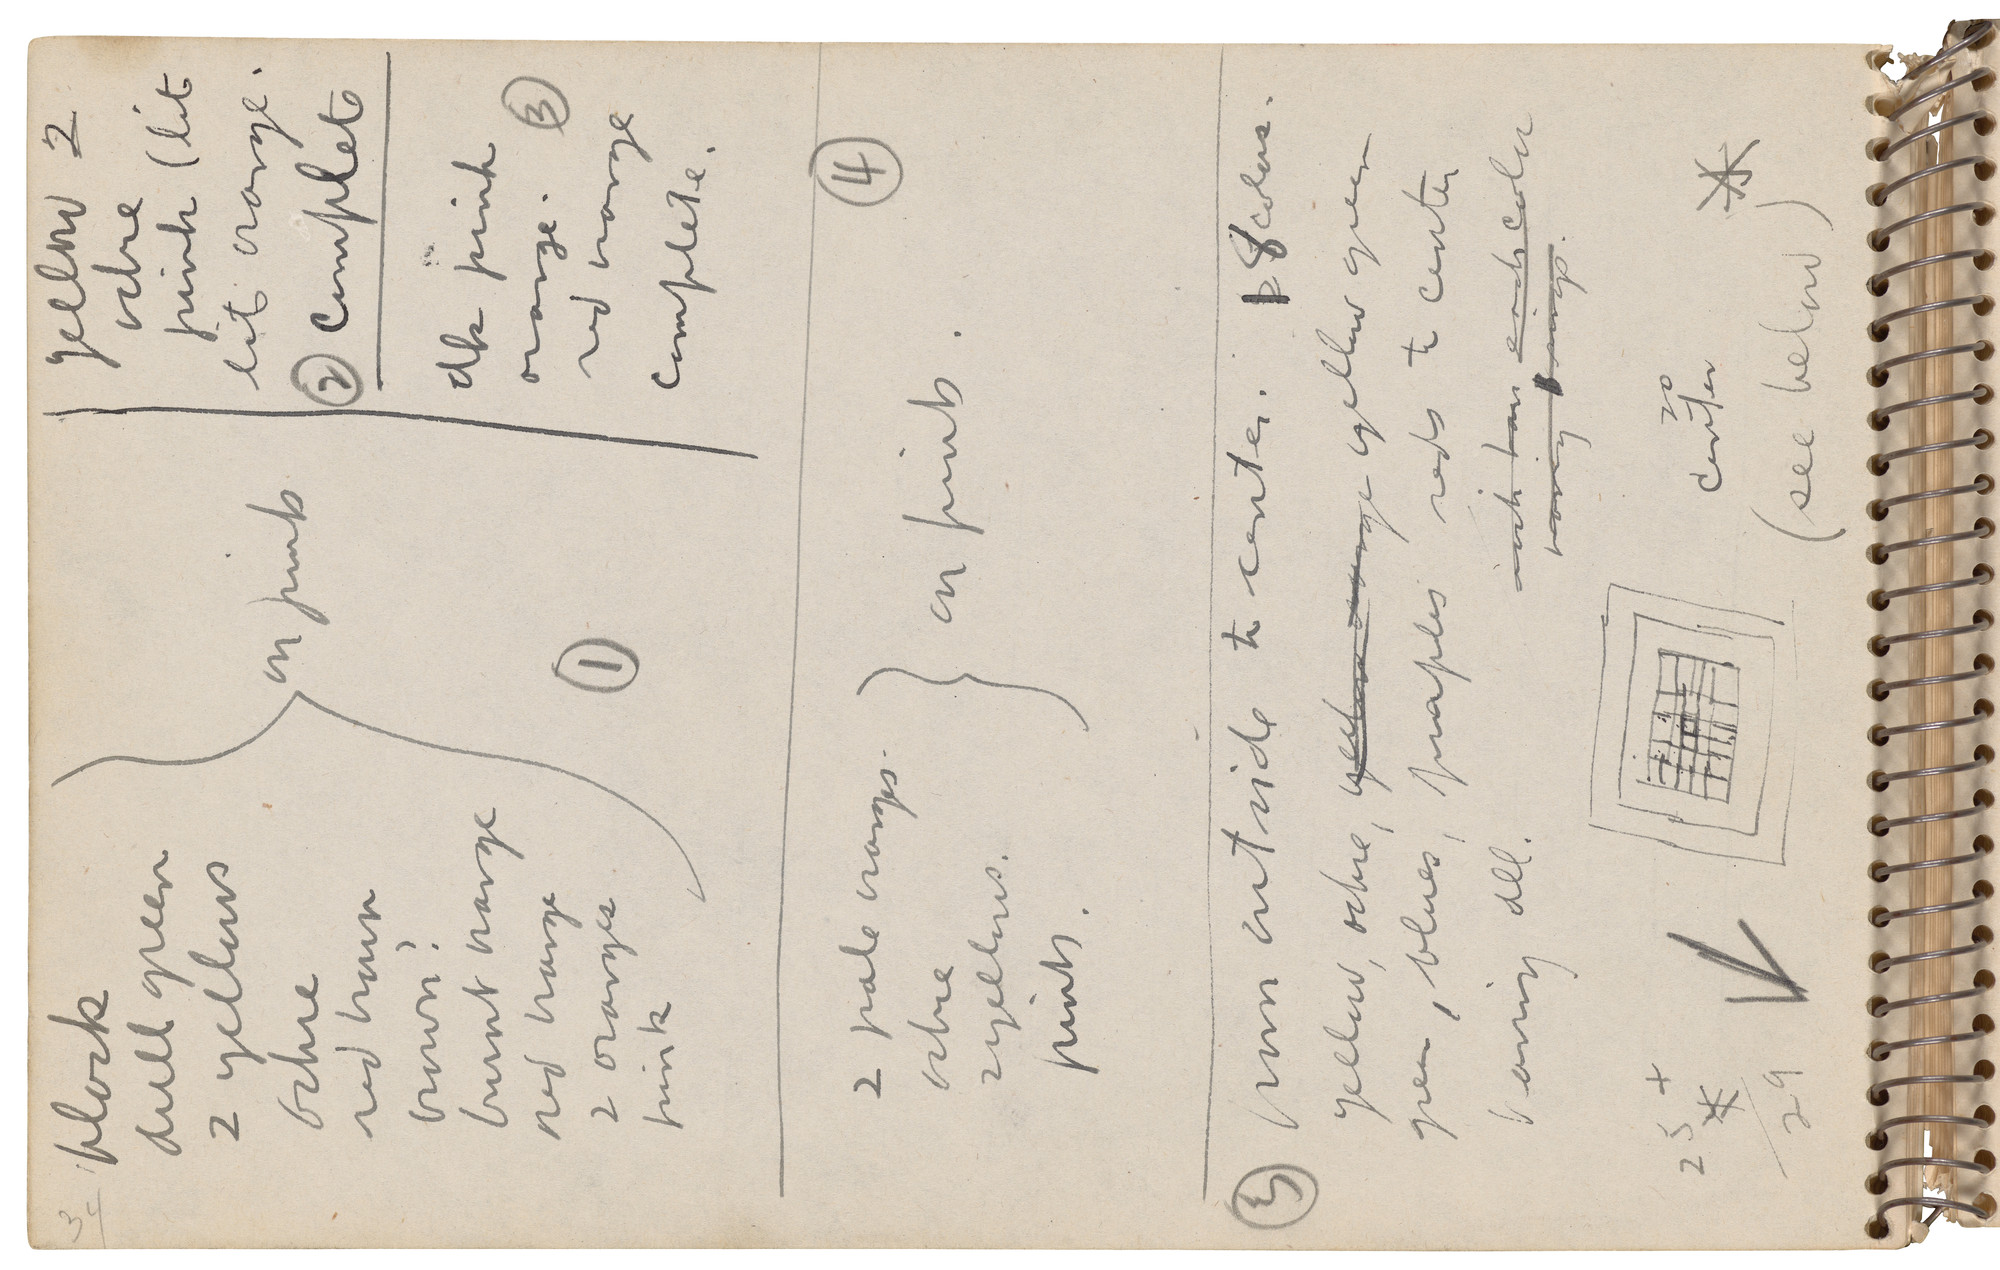 black
dull green
2 yellows
ochre
red brown
brown?
burnt orange
red orange
2 oranges
pink
on pink
①
yellow 2
ochre
pink (lit
lit orange.
② complete
dk pink ③
orange.
red orange
complete.
④
2 pale oranges.
ochre
2 yellows.
pinks.
on pink.
⑤ from outside to center. 8 colors.
yellow, ochre, yellow orange yellow green
green, blues, purples reds to center
each color
25 +
29
20
center
(see below)